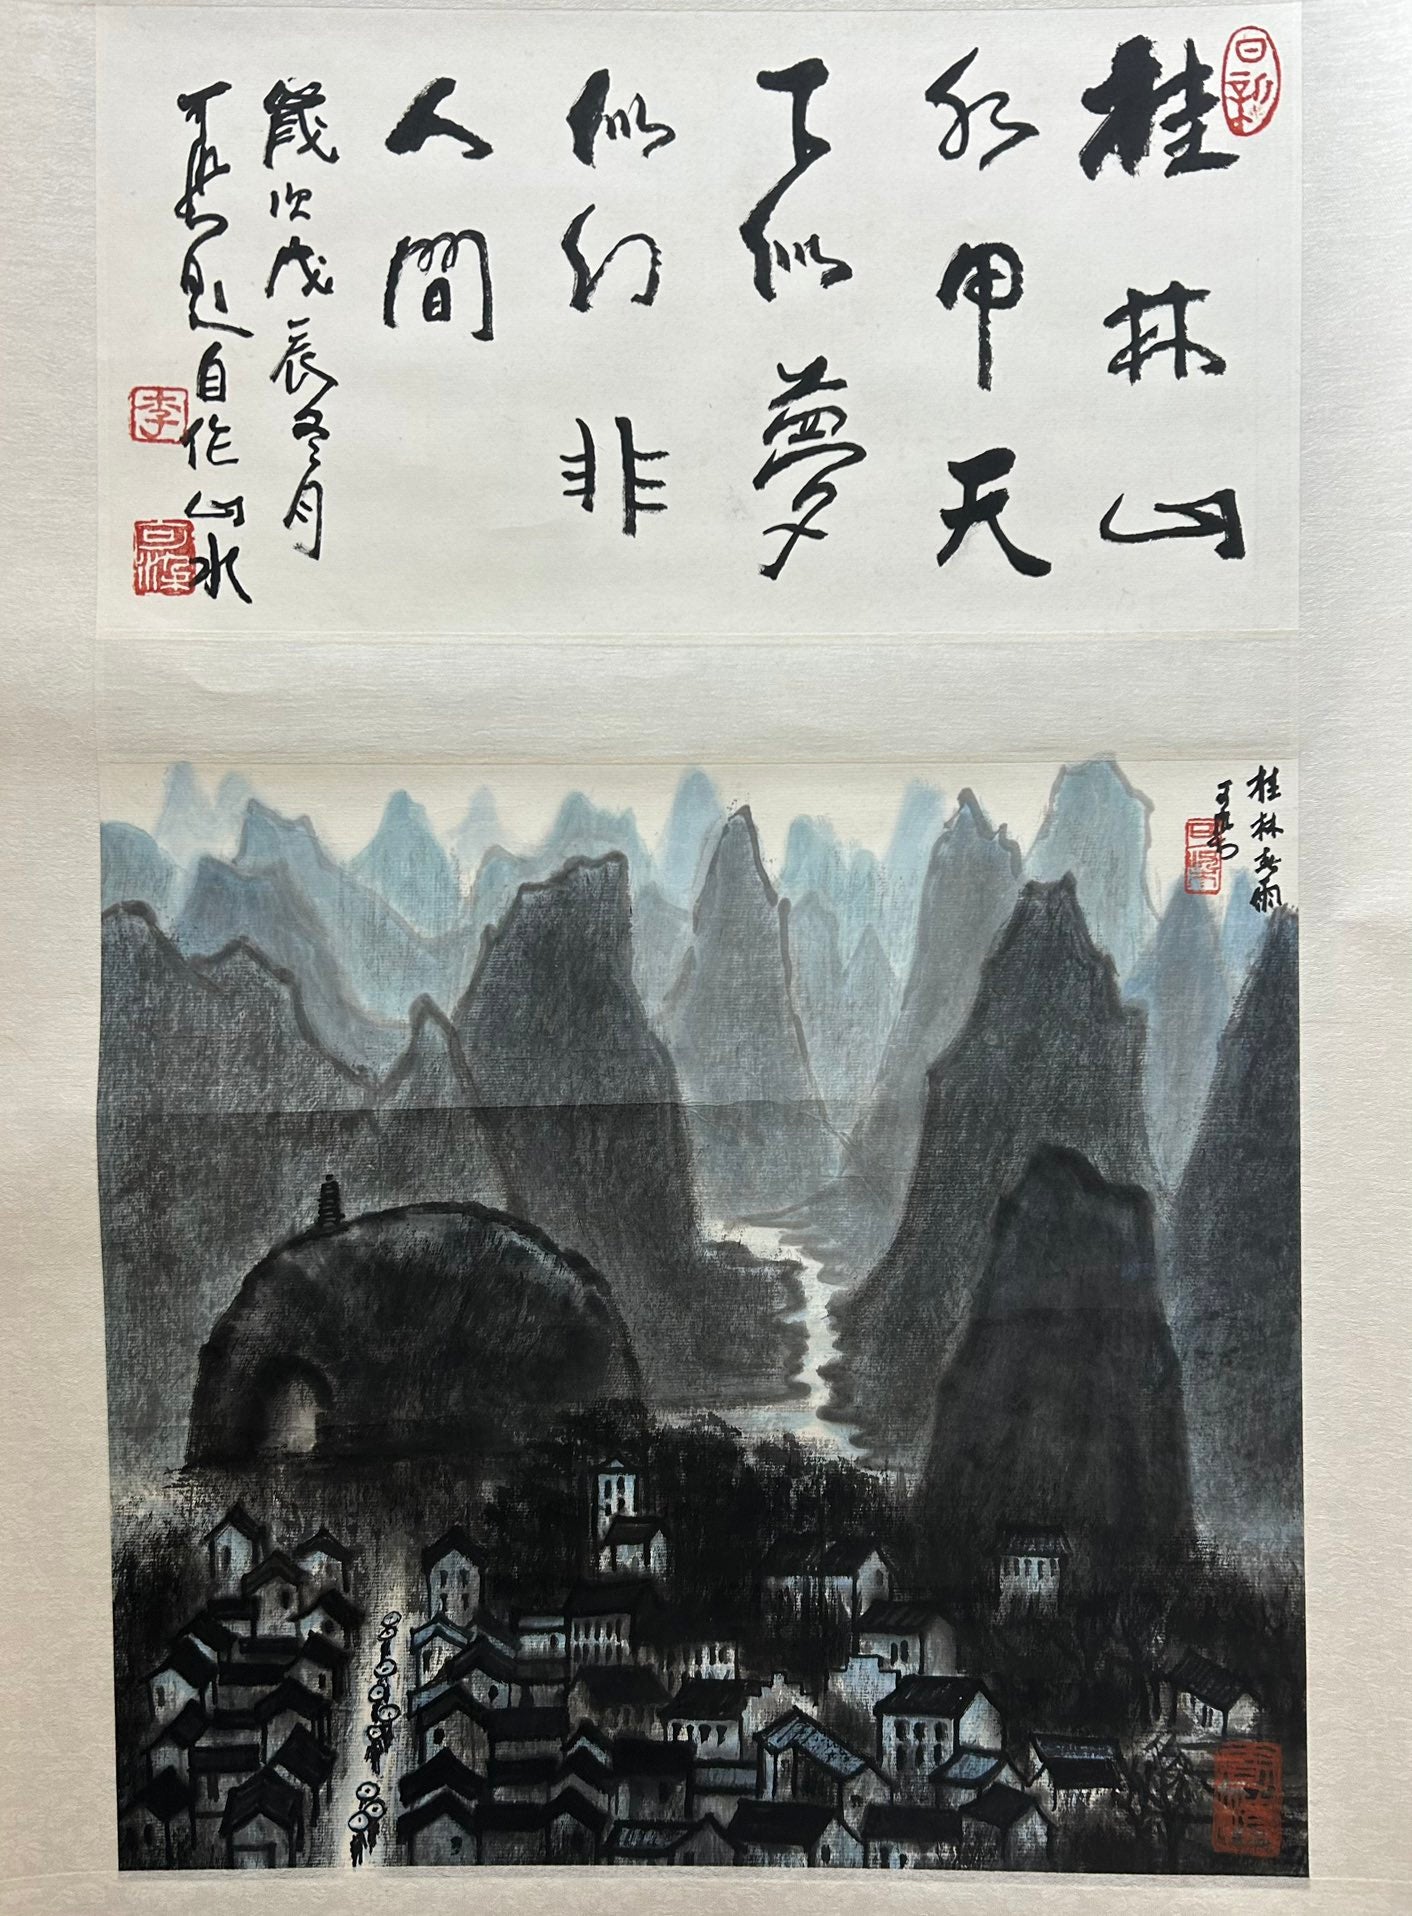 桂林山
水甲天
下似夢
似幻非
人間
歲次戊辰冬月
可染題自作山水
日新
李
可染
桂林春雨
可染
可染